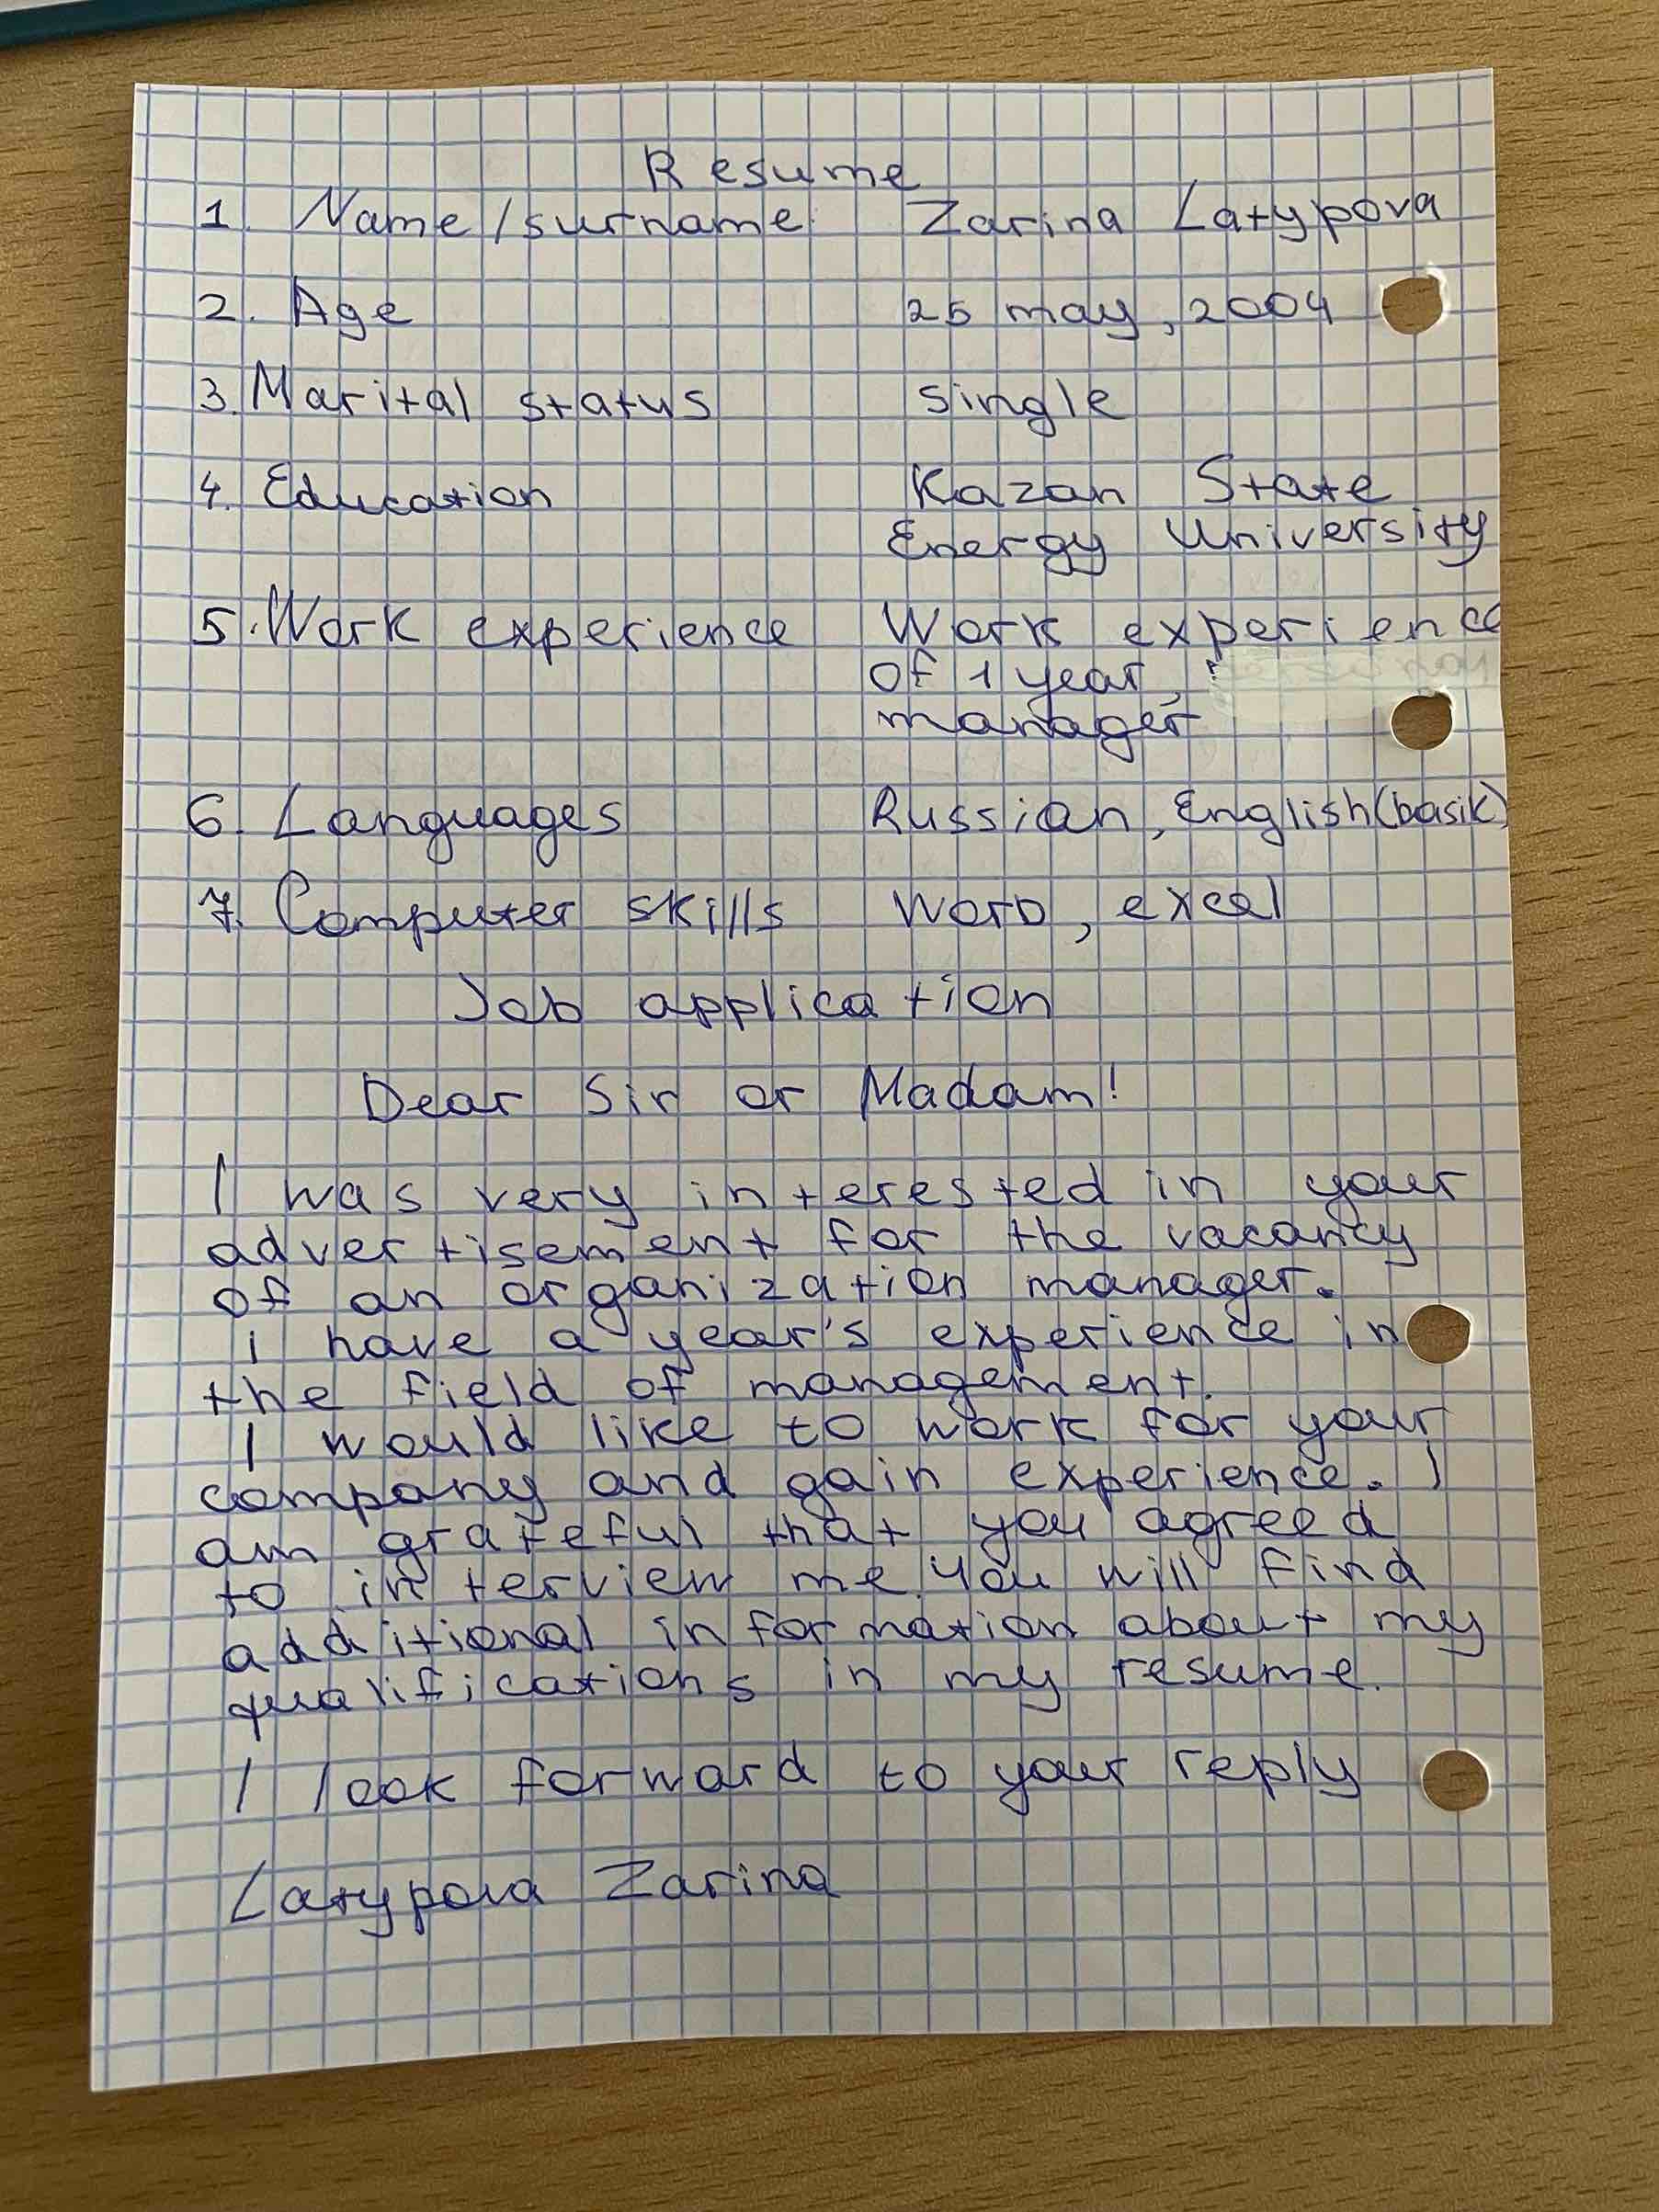 Resume
1. Name/surname Zarina Latypova
2. Age 25 may, 2004
3. Marital status single
4. Education Kazan State
Energy University
5. Work experience Work experience
of 1 year,
manager
6. Languages Russian, English(basik)
7. Computer skills Word, excel
Job application
Dear Sir or Madam!
I was very interested in your
advertisement for the vacancy
of an organization manager.
i have a year's experience in
the field of management.
I would like to work for your
company and gain experience. I
am grateful that you agreed
to interview me. You will find
additional information about my
qualifications in my resume.
I look forward to your reply
Latypova Zarina